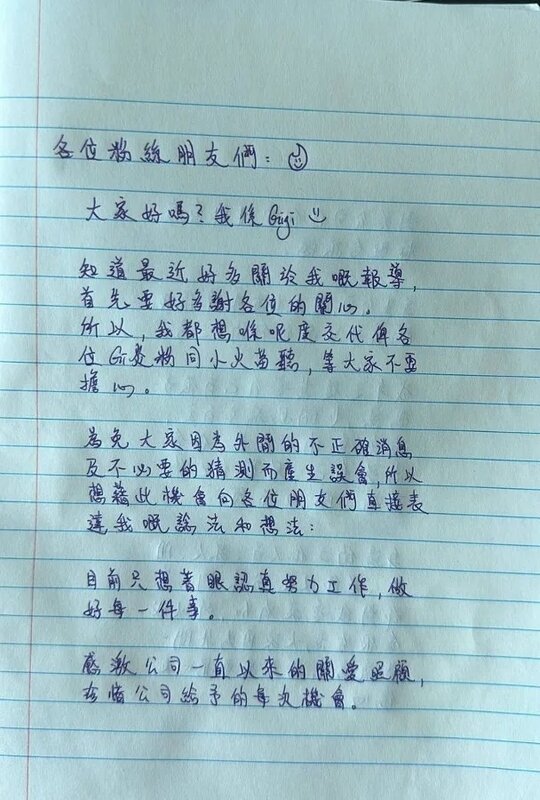 各位粉絲朋友們：☺
大家好嗎？我係Gigi ☺
知道最近好多關於我嘅報導，
首先要好多謝各位的關心。
所以，我都想喺呢度交代俾各
位Gi炎粉同小火苗聽，等大家不要
擔心。
為免大家因為外間的不正確消息
及不必要的猜測而產生誤會，所以
想藉此機會向各位朋友們直接表
達我嘅諗法和想法：
目前只想著眼認真努力工作，做
好每一件事。
感激公司一直以來的關愛照顧，
珍惜公司給予的每次機會。